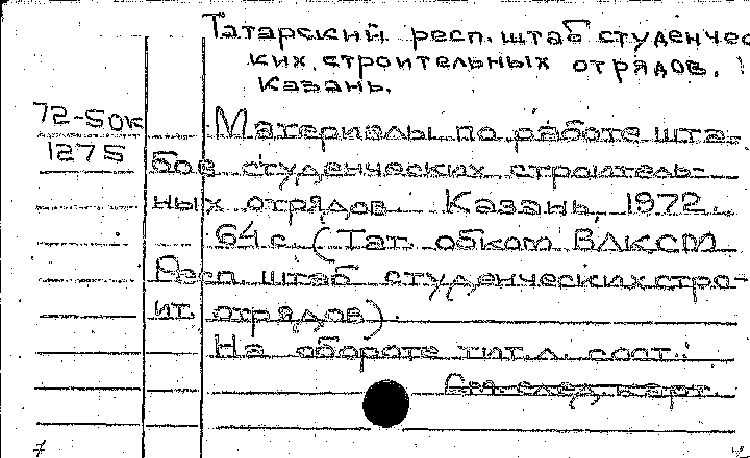 Татарский респ. штаб студенчес
ких строительных отрядов.
Казань.
72-50к
1275
Материалы по работе шта-
бов студенческих строитель-
ных отрядов. Казань, 1972.
64 с. (Тат. обком ВЛКСМ
Респ. штаб студенческих стро-
ит. отрядов).
На обороте тит. л. сост.:
См. след. карт.